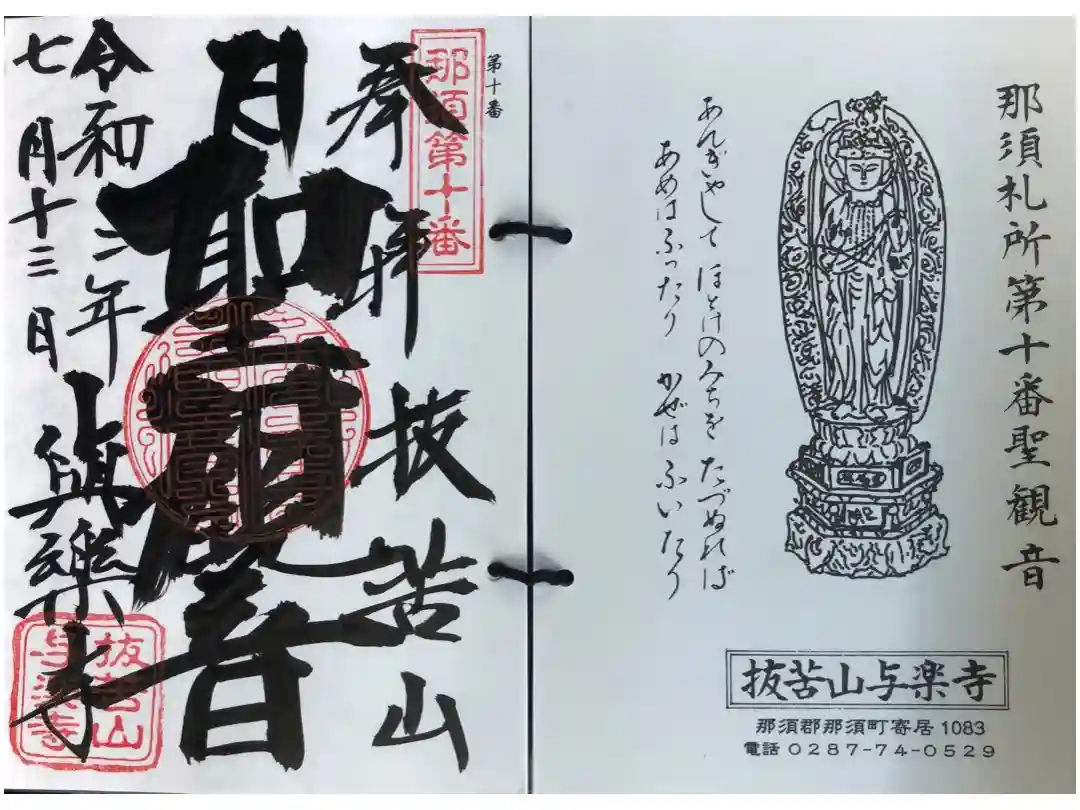 那須札所第十番聖観音
あんぎゃして ほとけのみちを たづぬれば
あめはふったり かぜは ふいたり
抜苦山与楽寺
那須郡那須町寄居1083
電話 0287-74-0529
第十番
那須第十番
奉拝 抜苦山
聖観音
令和三年 與樂寺
七月十三日
抜苦山
与楽寺